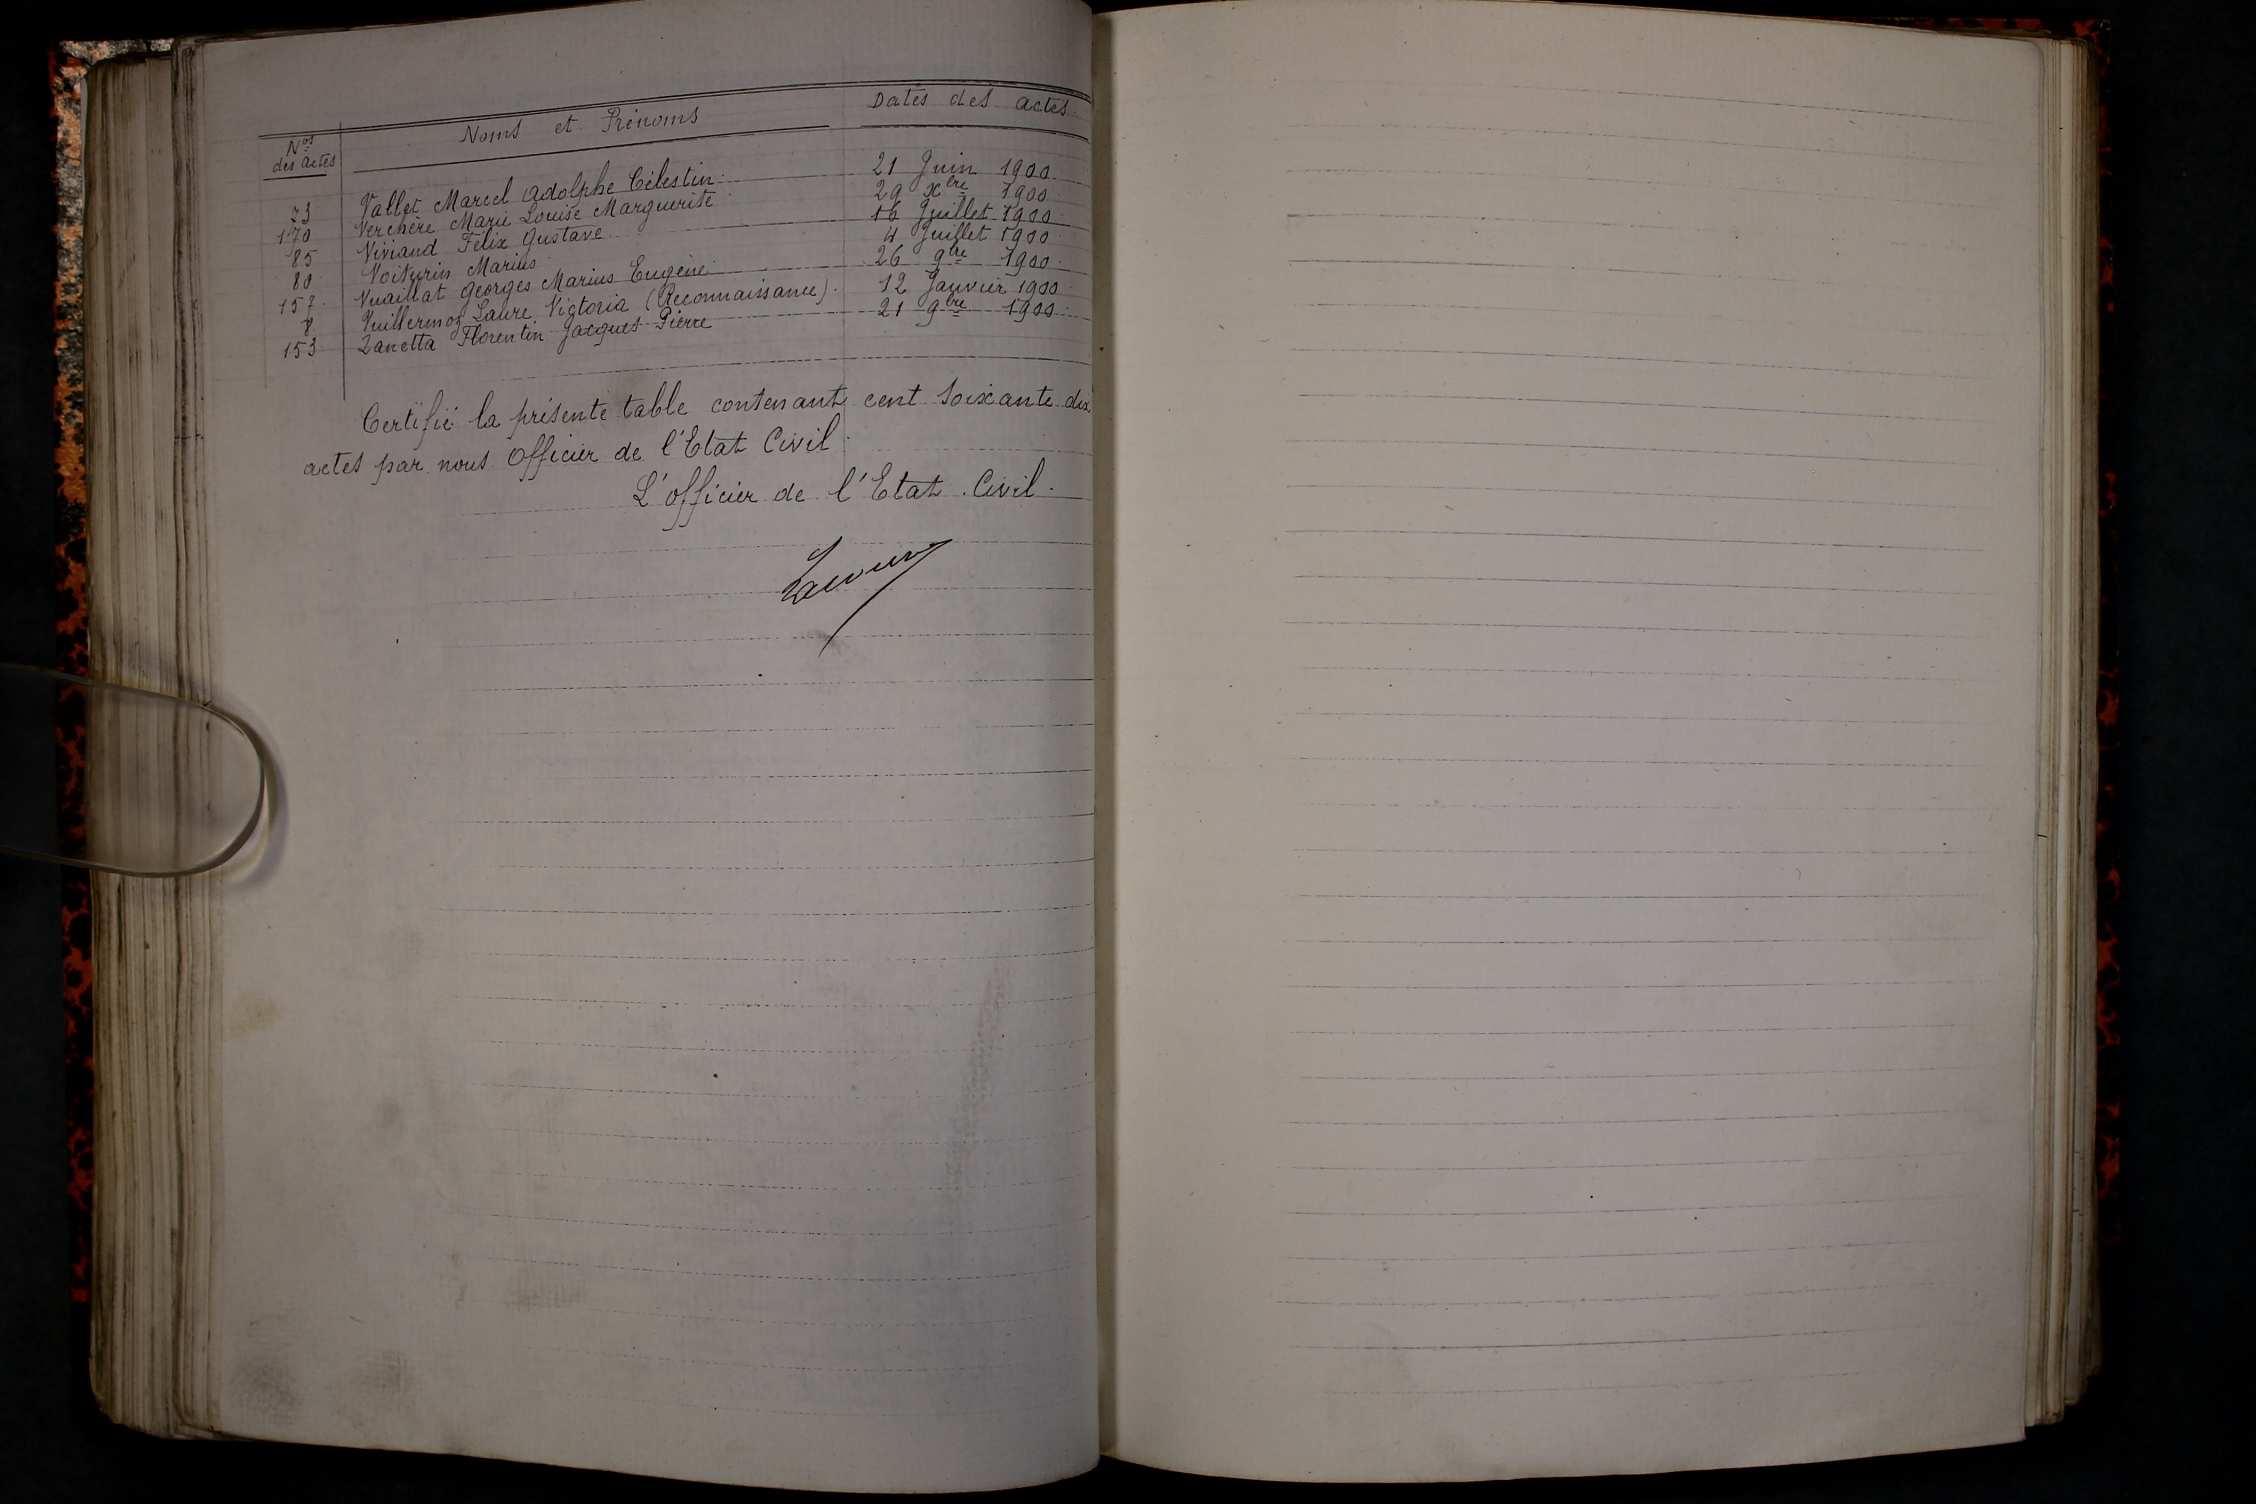 Nos des actes Noms et Prénoms Dates des actes
73 Vallet Marcel Adolphe Célestin 21 Juin 1900
170 Verchère Marie Louise Marguerite 29 xbre 1900
85 Viviand Félix Gustave 16 Juillet 1900
80 Voiturin Marius 4 Juillet 1900
157 Vuaillat Georges Marius Eugène 26 9bre 1900
8 Vuillermoz Laure Victoria (Reconnaissance) 12 Janvier 1900
153 Zanetta Florentin Jacques Pierre 21 9bre 1900
Certifié la présente table contenant cent soixante dix
actes par nous Officier de l'Etat Civil.
L'officier de l'Etat Civil.